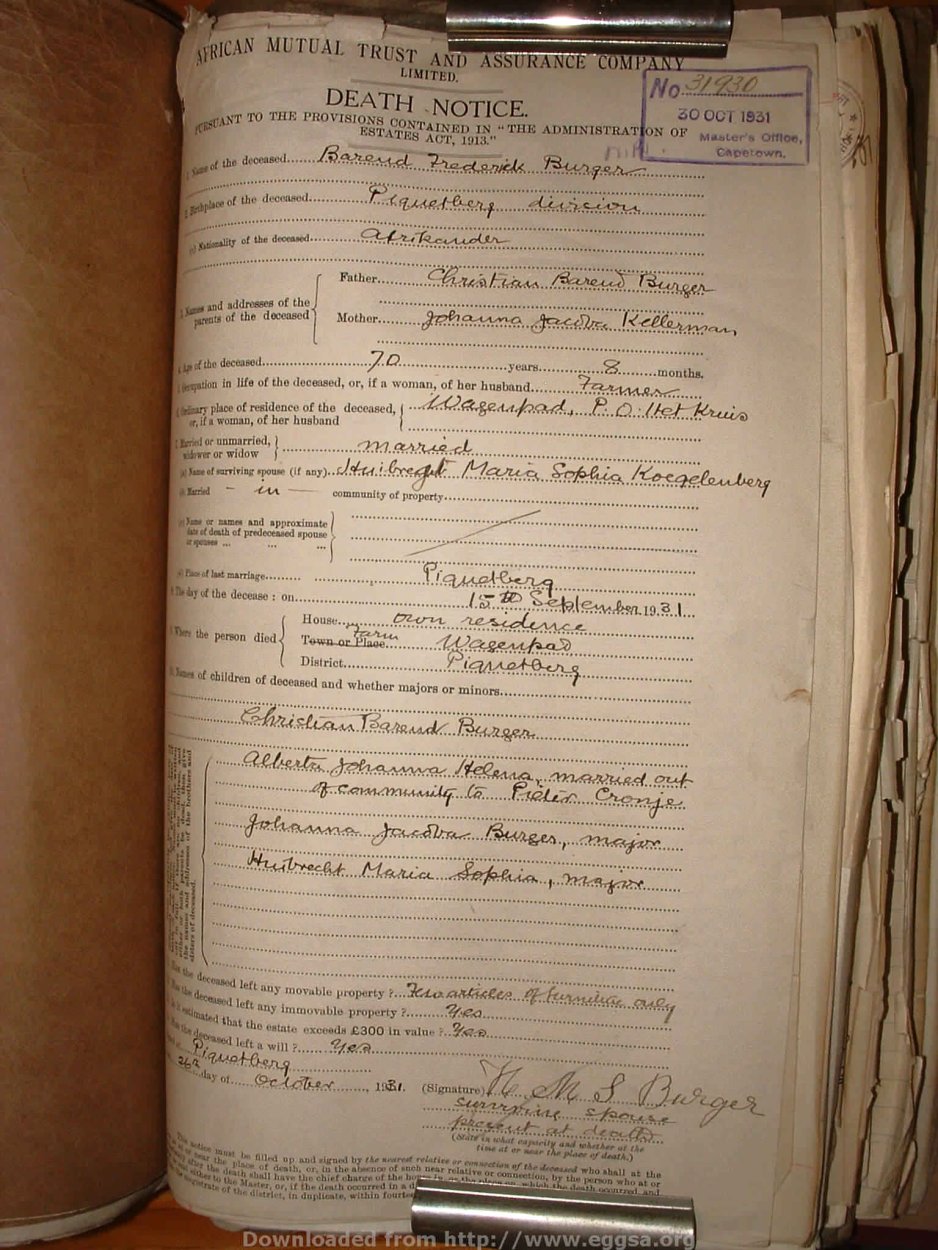 AFRICAN MUTUAL TRUST AND ASSURANCE COMPANY
LIMITED.
No. 31930
30 OCT 1931
Master's Office,
Capetown.
DEATH NOTICE.
PURSUANT TO THE PROVISIONS CONTAINED IN "THE ADMINISTRATION OF
ESTATES ACT, 1913."
1. Name of the deceased Barend Frederick Burger
2. Birthplace of the deceased Piquetberg division
Nationality of the deceased Afrikander
3. Names and addresses of the parents of the deceased
Father Christian Barend Burger
Mother Johanna Jacoba Kellerman
4. Age of the deceased 70 years 8 months.
Occupation in life of the deceased, or, if a woman, of her husband Farmer
Ordinary place of residence of the deceased, Wagenpad, P.O. Het Kruis
or, if a woman, of her husband
7. Married or unmarried, married
widower or widow
(a) Name of surviving spouse (if any) Huibrecht Maria Sophia Koegelenberg
(b) Married - in - community of property
(c) Name or names and approximate
date of death of predeceased spouse
or spouses ... ... ...
Place of last marriage Piquetberg
The day of the decease : on 15th September 1931
Where the person died
House own residence
Town or Place Farm Wagenpad
District Piquetberg
Names of children of deceased and whether majors or minors
Christian Barend Burger
Alberta Johanna Helena, married out
of community to Pieter Cronje
Johanna Jacoba Burger, major
Huibrecht Maria Sophia, major
the names and addresses of the brothers and
sisters of deceased.
Has the deceased left any movable property ? Few articles of furniture only
Has the deceased left any immovable property ? Yes
Is it estimated that the estate exceeds £300 in value ? Yes
Has the deceased left a will ? Yes
Piquetberg
26 day of October, 1931. (Signature) H M S Burger
surviving spouse
present at death
(State in what capacity and whether at the
time at or near the place of death.)
This notice must be filled up and signed by the nearest relative or connection of the deceased who shall at the
or near the place of death, or, in the absence of such near relative or connection, by the person who at or
after the death shall have the chief charge of the house in, or the place on, which the death occurred, and
either to the Master, or, if the death occurred in a
Magistrate of the district, in duplicate, within fourteen
Downloaded from http://www.eggsa.org